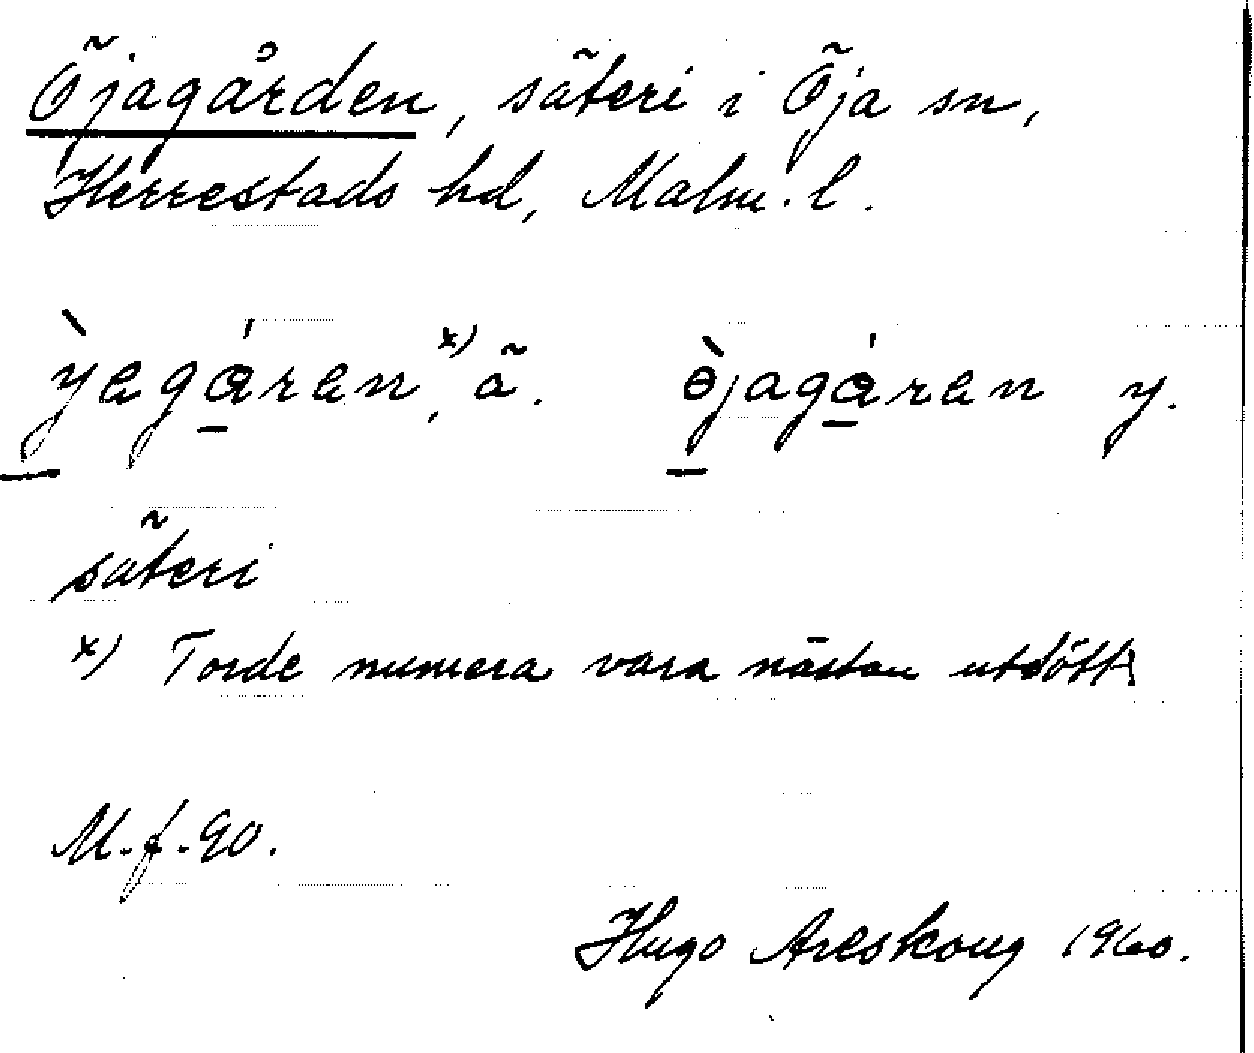 Öjagården, säteri i Öja sn,
Herrestads hd, Malm. l.
ỳ̲egá̲ren,ˣ⁾ ä. ө̲̀jagá̲ren y.
säteri
x) Torde numera vara nästan utdött
M.f.90.
Hugo Areskoug 1960.